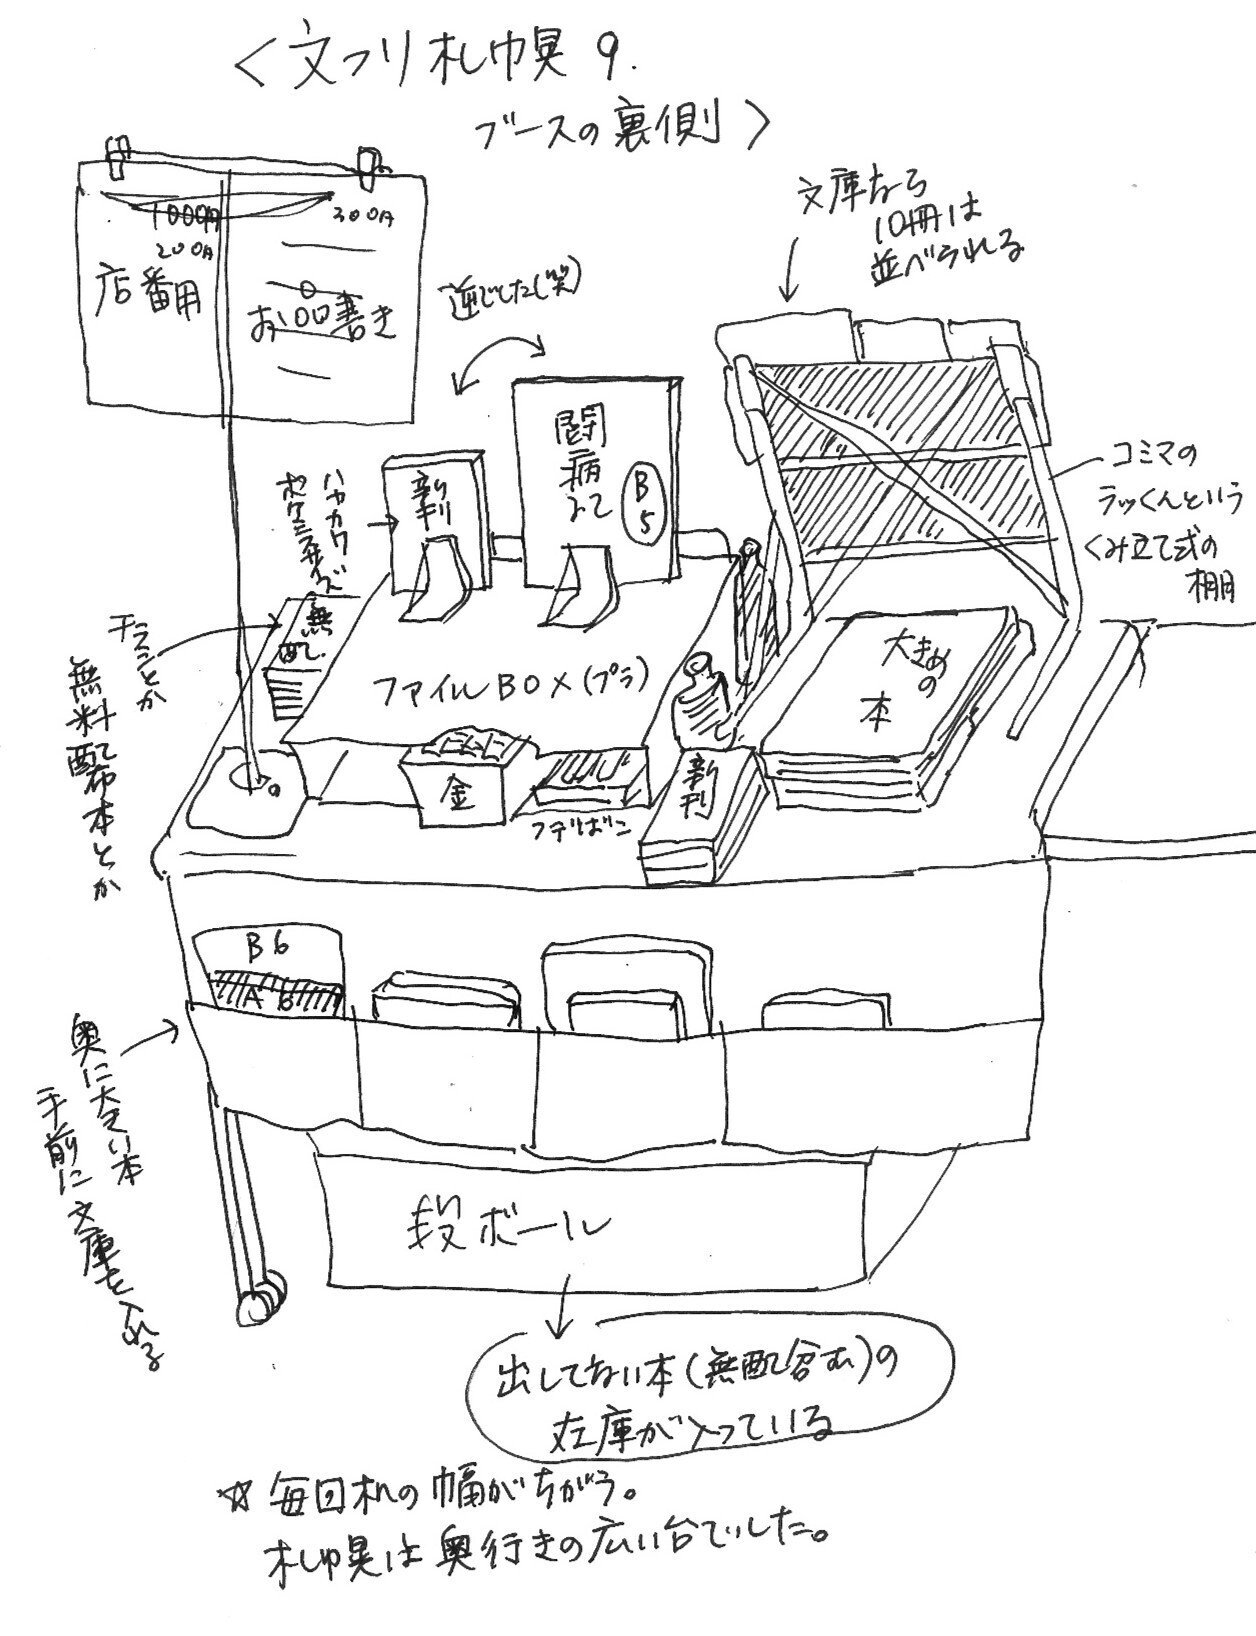 <文フリ札幌9.
ブースの裏側>
1000円
200円
300円
店番用
お品書き
逆でした(笑)
文庫なら
10冊は
並べられる
新刊
闘病
B5
コミマの
ラッくんという
くみ立て式の
棚
ハヤカワ
ポケミスサイズ
無配
チラシとか
無料配布本とか
ファイルBOX(プラ)
大きめの
本
金
フデばこ
新刊
B6
A6
奥に大きい本
手前に文庫を入れる
段ボール
出してない本(無配含む)の
在庫が入っている
☆毎回机の幅がちがう。
札幌は奥行きの広い台でした。